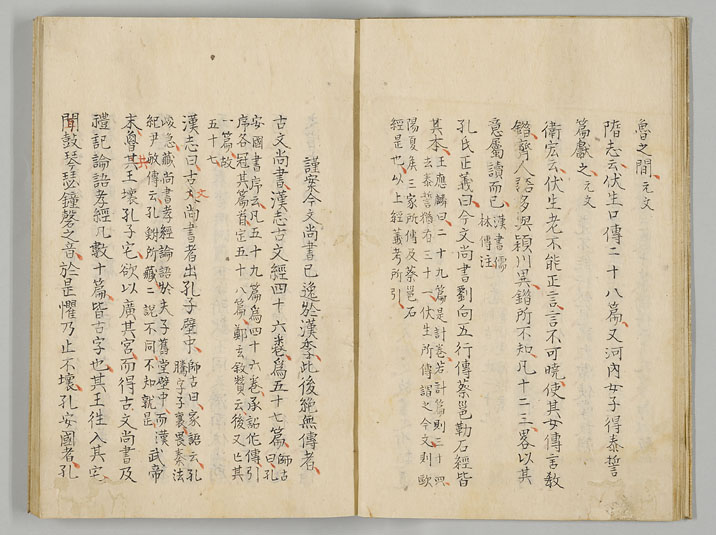 魯之間元文
隋志云伏生口傳二十八篇又河内女子得泰誓
篇獻之元文
衛宏云伏生老不能正言言不可曉使其女傳言教
錯齊人語多與穎川異錯所不知凡十二三畧以其
意屬讀而已漢書儒
林傳注
孔氏正義曰今文尚書劉向五行傳蔡邕勒石經皆
其本王應麟曰二十九篇是計卷若計篇則三十四
去泰誓猶有三十一伏生所傳謂之今文則歐
陽夏矦三家所傳及蔡邕石
經是也以上經義考所引
謹案今文尚書已逸於漢季此後絶無傳者
古文尚書漢志古文經四十六卷為五十七篇師古
曰孔
安國書序云凡五十九篇為四十六卷承詔作傳引
序各冠其篇首定五十八篇鄭玄敘贊云後又亡其
一篇故
五十七
漢志曰古文尚書者出孔子壁中師古曰家語云孔
騰字子襄畏秦法
峻急藏尚書孝經論語於夫子舊堂壁中而漢
紀尹敏傳云孔鮒所藏二説不同不知孰是武帝
末魯共王壞孔子宅欲以廣其宮而得古文尚書及
禮記論語孝經凡數十篇皆古字也共王往入其宅
聞鼓琴瑟鐘磬之音於是懼乃止不壞孔安國者孔